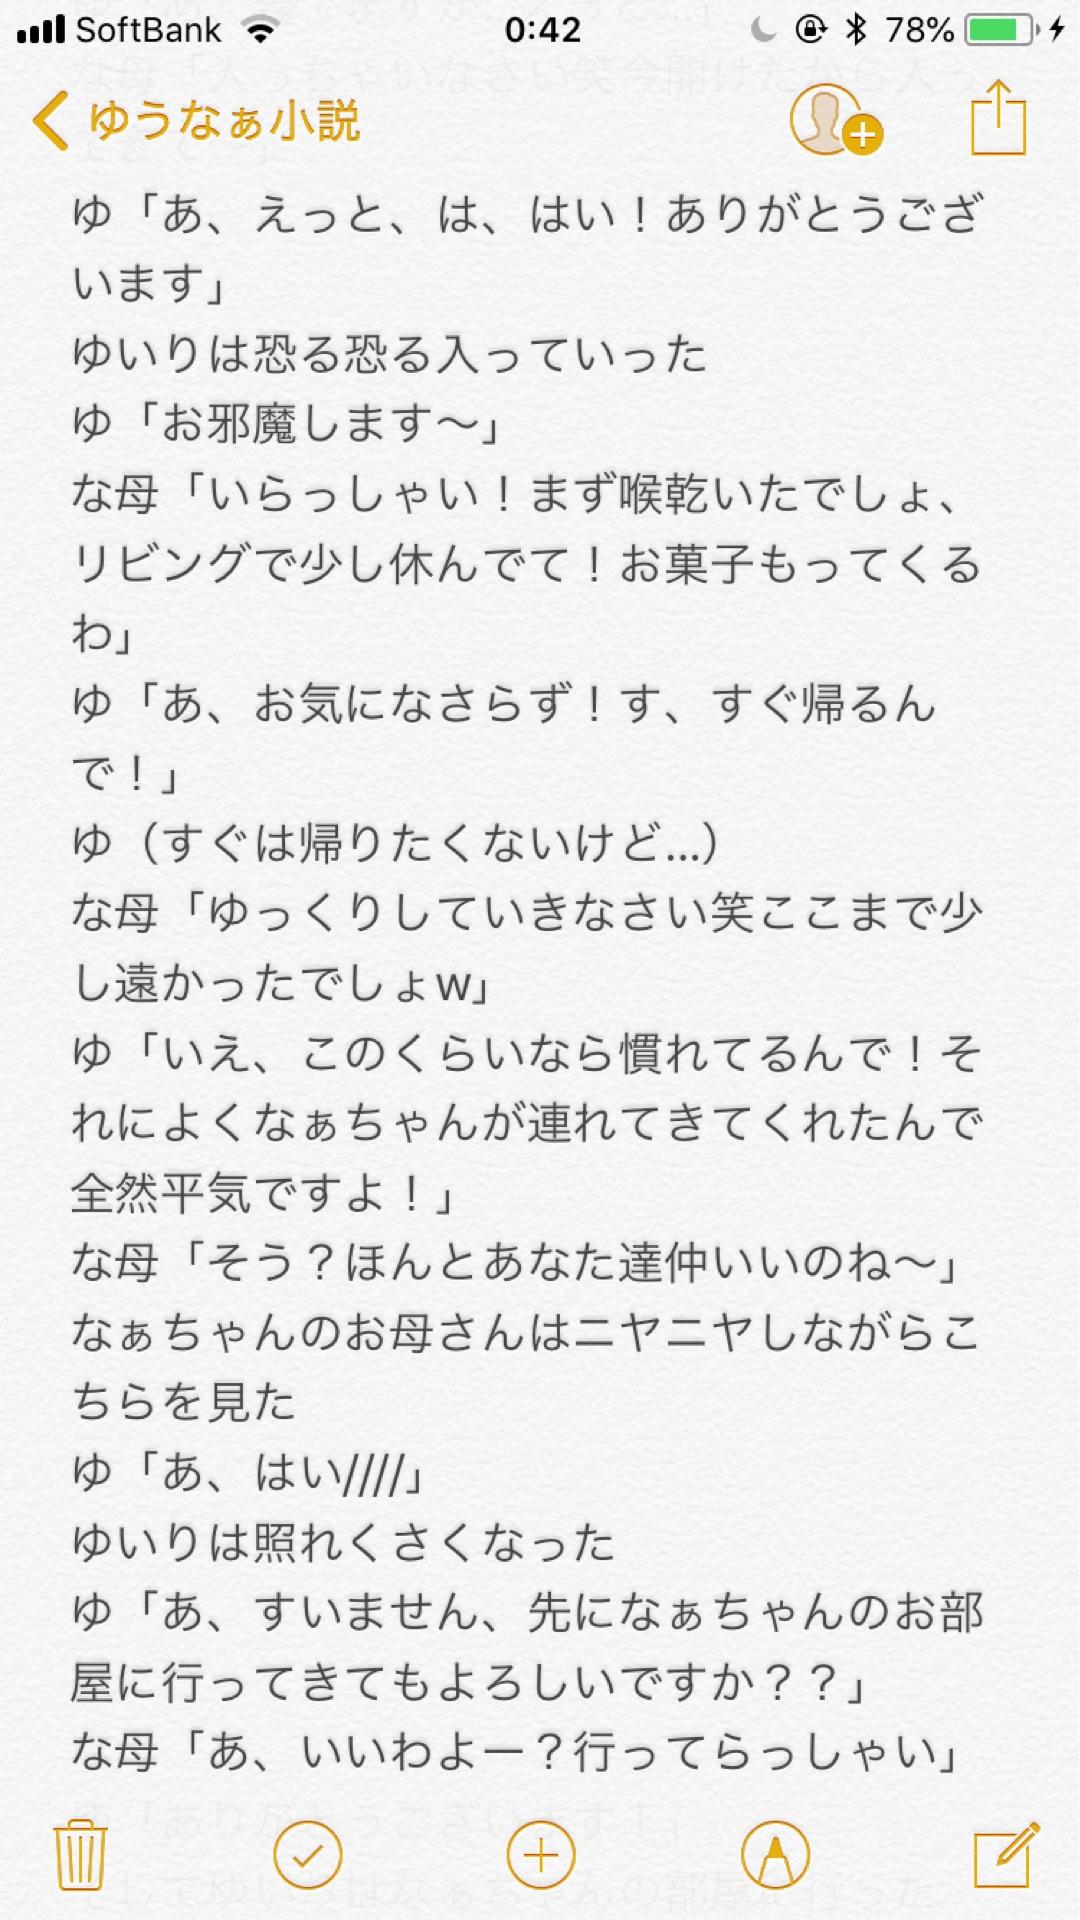 SoftBank 0:42 78%
ゆうなぁ小説
ゆ「あ、えっと、は、はい！ありがとうござ
います」
ゆいりは恐る恐る入っていった
ゆ「お邪魔します〜」
な母「いらっしゃい！まず喉乾いたでしょ、
リビングで少し休んでて！お菓子もってくる
わ」
ゆ「あ、お気になさらず！す、すぐ帰るん
で！」
ゆ（すぐは帰りたくないけど...）
な母「ゆっくりしていきなさい笑ここまで少
し遠かったでしょw」
ゆ「いえ、このくらいなら慣れてるんで！そ
れによくなぁちゃんが連れてきてくれたんで
全然平気ですよ！」
な母「そう？ほんとあなた達仲いいのね〜」
なぁちゃんのお母さんはニヤニヤしながらこ
ちらを見た
ゆ「あ、はい////」
ゆいりは照れくさくなった
ゆ「あ、すいません、先になぁちゃんのお部
屋に行ってきてもよろしいですか？？」
な母「あ、いいわよー？行ってらっしゃい」